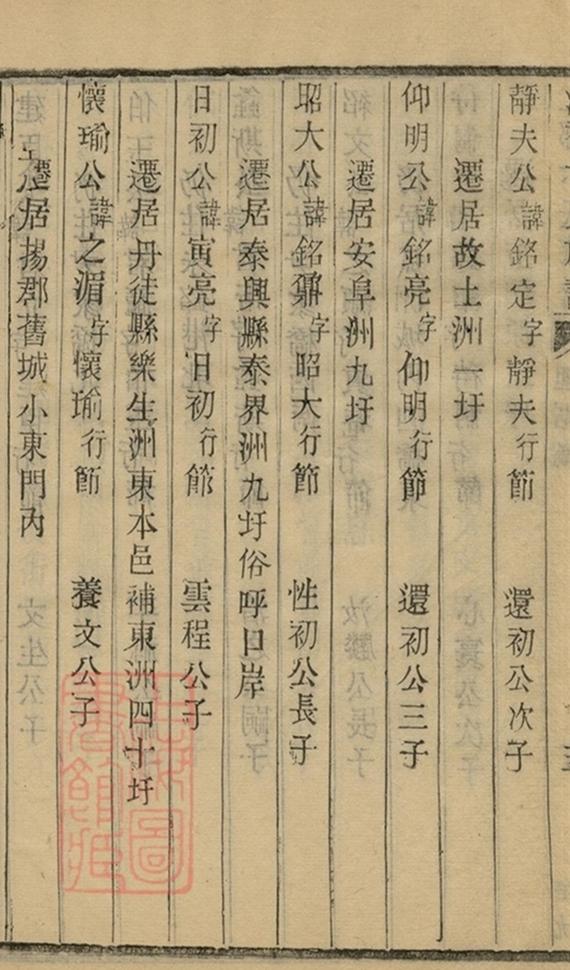 靜夫公諱銘定字靜夫行節　還初公次子
遷居故土洲一圩
仰明公諱銘亮字仰明行節　還初公三子
遷居安阜洲九圩
昭大公諱銘鼐字昭大行節　性初公長子
遷居泰興縣泰界洲九圩俗呼日岸
日初公諱寅亮字日初行節　雲程公子
遷居丹徒縣樂生洲東本邑補東洲四十圩
懷瑜公諱之湄字懷瑜行節　養文公子
遷居揚郡舊城小東門內